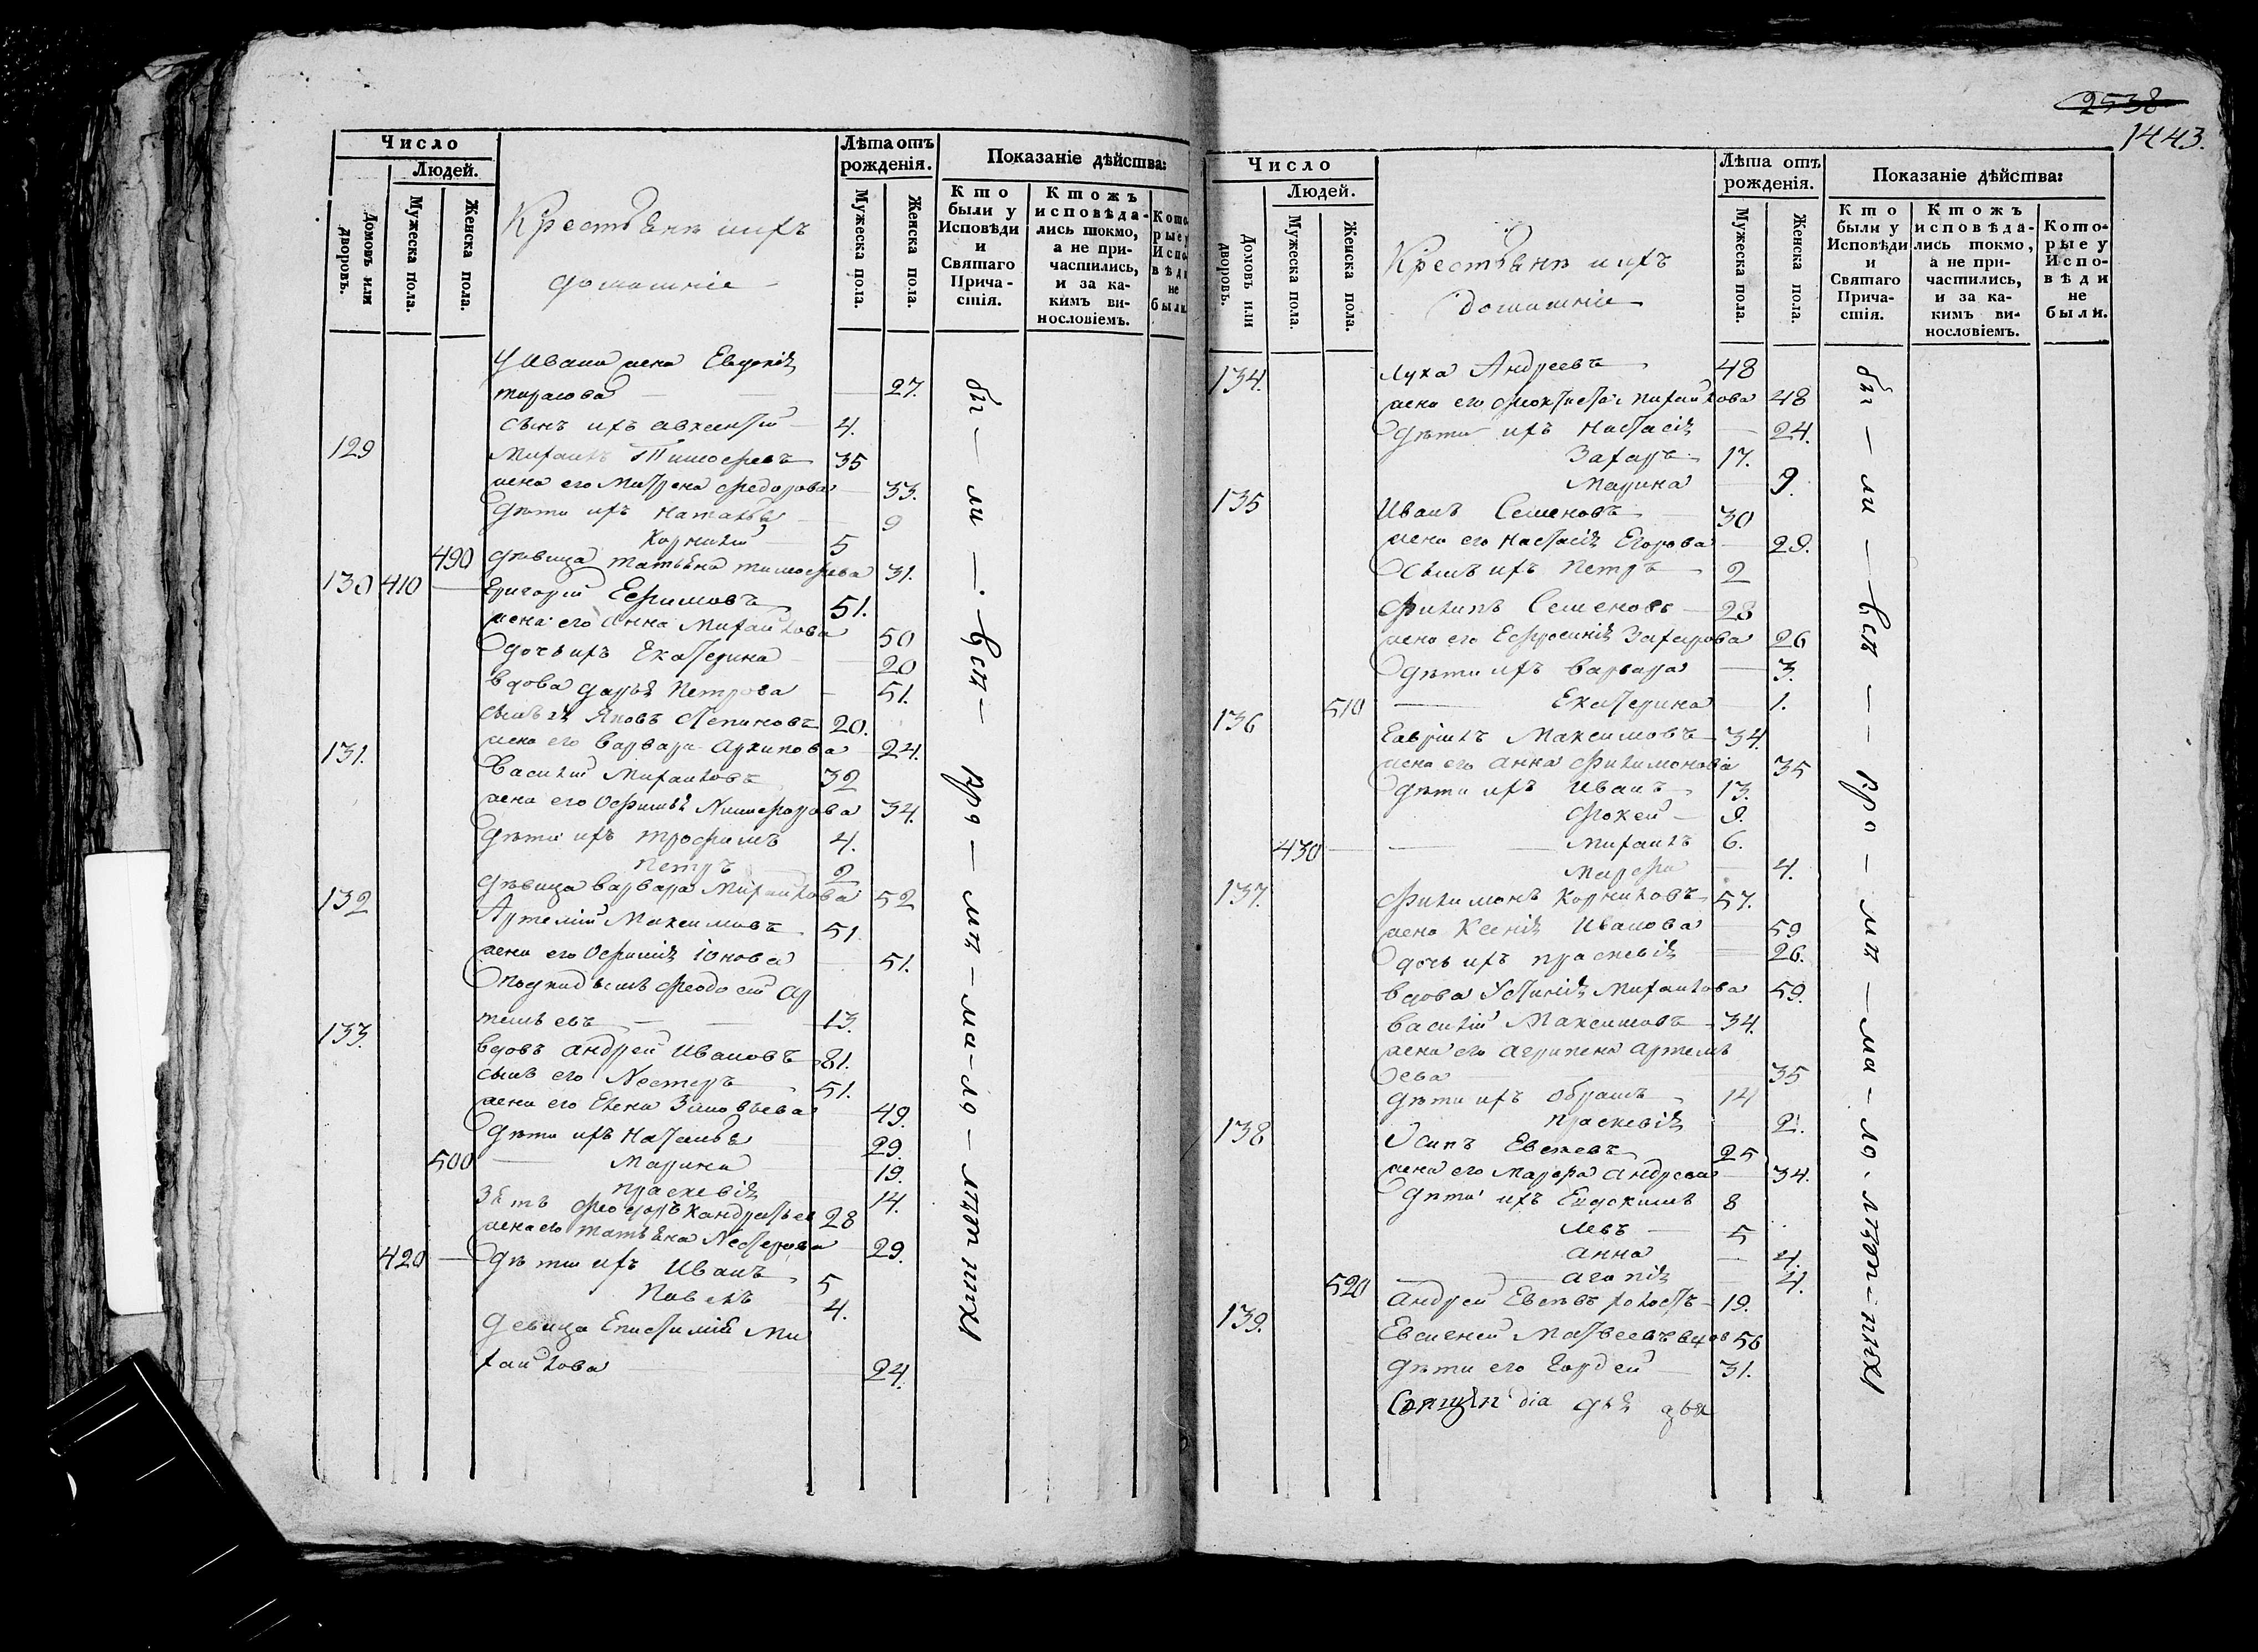 2538
1443.
Число
Людей.
Домовъ или дворовъ.
Мужеска пола.
Женска пола.
Крестьянъ ихъ
домашніе
Лѣта отъ рожденія.
Мужеска пола.
Женска пола.
Показаніе дѣйства:
Кто были у Исповѣди и Святаго Причастія.
Ктожъ исповѣдались токмо, а не причастились, и за какимъ винословіемъ.
Которые у Исповѣди не были.
У Ивана жена Евдокія
тарасова 27.
сынъ ихъ авксентій 4.
129 Михаилъ Тимофеевъ 35
жена его Матрена федорова 33.
дѣти ихъ Наталья 9
Корнилій 5
490 дѣвица татьяна тимофеева 31.
130 410 Григорій Ефимовъ 51.
жена его Анна Михайлова 50
дочь ихъ Екатерина 20
вдова дарья Петрова 51.
сынъ ея Яковъ 20.
жена его Варвара Архипова 24.
131. Василій Михайловъ 32
жена его Офимья Никифорова 34.
дѣти ихъ трофимъ 4.
Петръ 2
дѣвица варвара Михайлова 52
132 Артемій Максимовъ 51.
жена его Офимія Іонова 51.
подкидышъ феодосій Ар
темьевъ 13.
133. вдовъ андрей Ивановъ 81.
сынъ его Нестеръ 51.
жена его Елена Зиновьева 49.
дѣти ихъ Наталья 29.
500 Марина 19.
праскевія 14.
Зять феодоръ 28
жена его татьяна Нестерова 29.
420 дѣти ихъ Иванъ 5
Павелъ 4.
девица Епистимія Ми
хайлова 24.
бы — ли — всѣ — про — мѣ — ма — ло — лѣт — нихъ
Число
Людей.
Домовъ или дворовъ.
Мужеска пола.
Женска пола.
Крестьянъ ихъ
домашніе
Лѣта отъ рожденія.
Мужеска пола.
Женска пола.
Показаніе дѣйства:
Кто были у Исповѣди и Святаго Причастія.
Ктожъ исповѣдались токмо, а не причастились, и за какимъ винословіемъ.
Которые у Исповѣди не были.
134. лука Андреевъ 48
жена его феоктиста михайлова 48
дѣти ихъ Настасія 24.
Захаръ 17.
Марина 9.
135 Иванъ Семеновъ 30
жена его Настасія Егорова 29.
сынъ ихъ Петръ 2
филипъ Семеновъ 28
жена его Ефросинія Захарова 26
дѣти ихъ варвара 3.
510 Екатерина 1.
136 Гавріилъ Максимовъ 34.
жена его анна филимонова 35
дѣти ихъ Иванъ 13.
фокей 9.
430 Михаилъ 6.
Марфа 4.
137. филимонъ Корниловъ 57.
жена Ксенія Иванова 59
дочь ихъ праскевія 26.
вдова Устинія Михайлова 59.
василій Максимовъ 34.
жена его агрипена артемь
ева 35
дѣти ихъ обрамъ 14
праскевія 2.
138 Осипъ 25
жена его марфа андреева 34.
дѣти ихъ Евдокимъ 8
левъ 5
анна 4.
520 агапія 4.
андрей холостъ 19.
139. Евсигней Матвеевъ вдов 56
дѣти его Гордей 31.
бы — ли — всѣ — про — мѣ — ма — ло — лѣт — нихъ